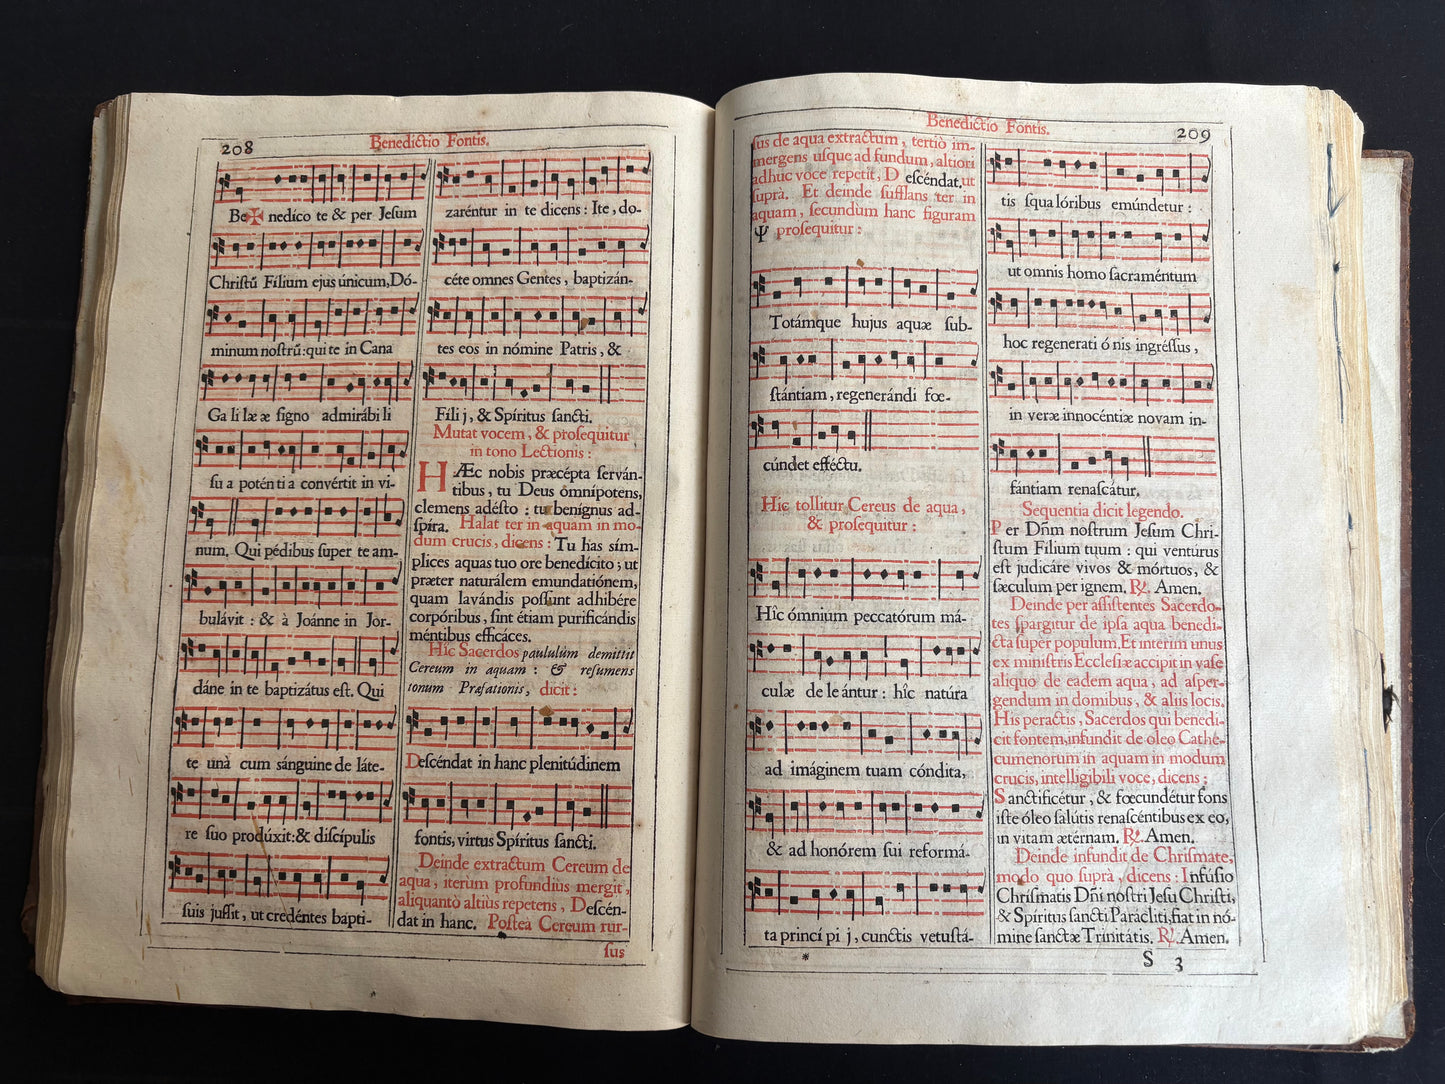 208
Benedictio Fontis.
Be✠ nedico te & per Jeſum
Chriſtũ Fílium ejus únicum, Dó-
minum noſtrũ: qui te in Cana
Ga li læ æ ſigno admirábi li
ſu a poténti a convértit in vi-
num. Qui pédibus ſuper te am-
bulávit : & à Joánne in Jor-
dáne in te baptizátus eſt. Qui
te unà cum sánguine de láte-
re ſuo prodúxit: & diſcípulis
suis juſſit, ut credéntes bapti-
zaréntur in te dicens : Ite, do-
céte omnes Gentes, baptizán-
tes eos in nómine Patris, &
Fíli j, & Spíritus ſancti.
Mutat vocem, & proſequitur
in tono Lectionis :
HÆc nobis præcépta ſerván-
tibus, tu Deus ômnípotens,
clemens adéſto : tu benígnus ad-
ſpíra. Halat ter in aquam in mo-
dum crucis, dicens : Tu has sím-
plices aquas tuo ore benedícito ; ut
præter naturálem emundatiónem,
quam lavándis poſſunt adhibére
corpóribus, ſint étiam purificándis
méntibus efficáces.
Hîc Sacerdos paululùm demittit
Cereum in aquam : & reſumens
tonum Præfationis, dicit :
Deſcéndat in hanc plenitúdinem
fontis, virtus Spíritus ſancti.
Deinde extractum Cereum de
aqua, iterùm profundiùs mergit,
aliquantò altiùs repetens, Deſcén-
dat in hanc. Poſteà Cereum rur-
sus
Benedictio Fontis.
209
ſus de aqua extractum, tertiò im-
mergens uſque ad fundum, altiori
adhuc voce repetit, D eſcéndat. ut
ſuprà. Et deinde ſufflans ter in
aquam, ſecundùm hanc figuram
Ψ proſequitur :
Totámque hujus aquæ ſub-
ſtántiam, regenerándi fœ-
cúndet efféctu.
Hic tollitur Cereus de aqua,
& proſequitur :
Hîc ómnium peccatórum má-
culæ de le ántur : hîc natúra
ad imáginem tuam cóndita,
& ad honórem ſui reformá-
ta princí pi j, cunctis vetuſtá-
*
tis ſqua lóribus emúndetur :
ut omnis homo ſacraméntum
hoc regenerati ó nis ingréſſus,
in veræ innocéntiæ novam in-
fántiam renaſcátur.
Sequentia dicit legendo.
Per Dñm noſtrum Jeſum Chri-
ſtum Fílium tuum : qui ventúrus
eſt judicáre vivos & mórtuos, &
ſæculum per ignem. ℟. Amen.
Deinde per aſſiſtentes Sacerdo-
tes ſpargitur de ipſa aqua benedi-
cta ſuper populum. Et interim unus
ex miniſtris Eccleſiæ accipit in vaſe
aliquo de eadem aqua, ad aſper-
gendum in domibus, & aliis locis.
His peractis, Sacerdos qui benedi-
cit fontem, infundit de óleo Cathe-
cumenorum in aquam in modum
crucis, intelligibili voce, dicens :
Sanctificétur, & fœcundétur fons
iſte óleo ſalútis renaſcéntibus ex eo,
in vitam ætérnam. ℟. Amen.
Deinde infundit de Chriſmate,
modo quo ſuprà, dicens : Infúſio
Chriſmatis Dñi noſtri Jeſu Chriſti,
& Spíritus ſancti Parácliti, fiat in nó-
mine ſanctæ Trinitátis. ℟. Amen.
S 3